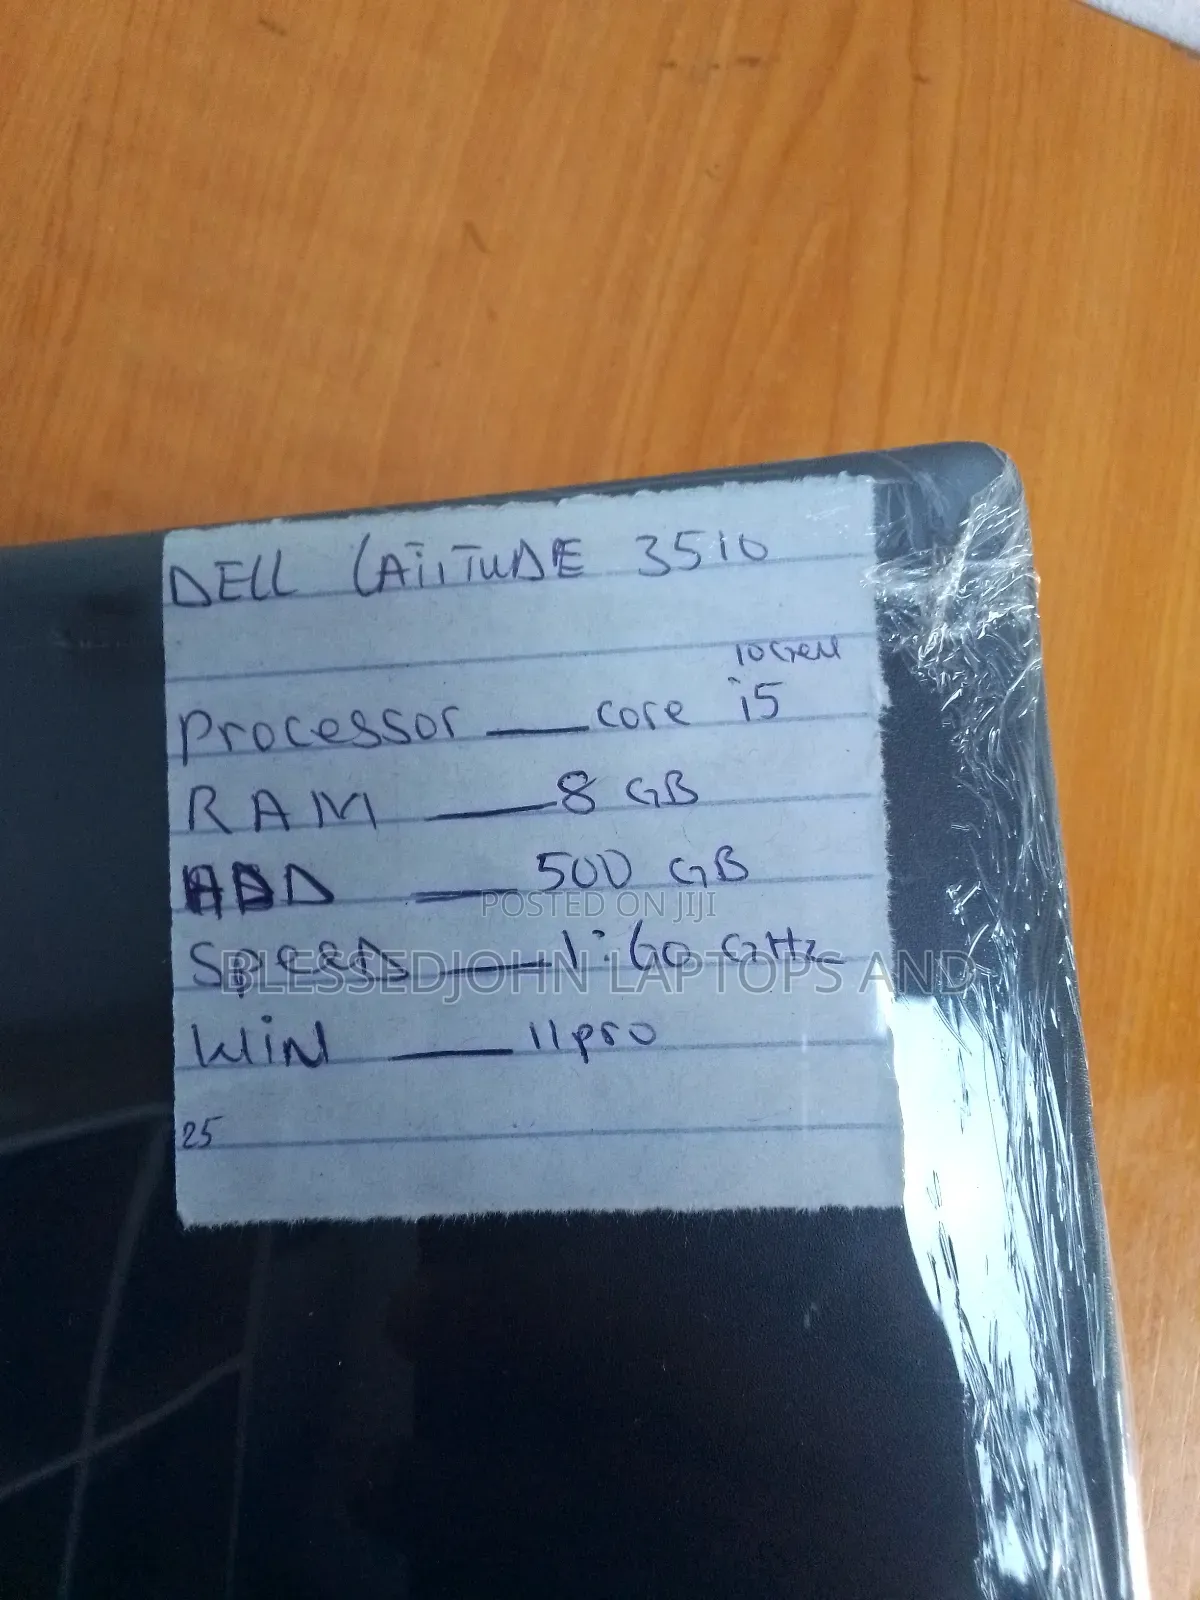 DELL LATITUDE 3510
10Gen
Processor — core i5
RAM — 8 GB
HDD — 500 GB
POSTED ON JIJI
Speed — 1.60 GHz
BLESSEDJOHN LAPTOPS AND
WIN — 11 pro
25